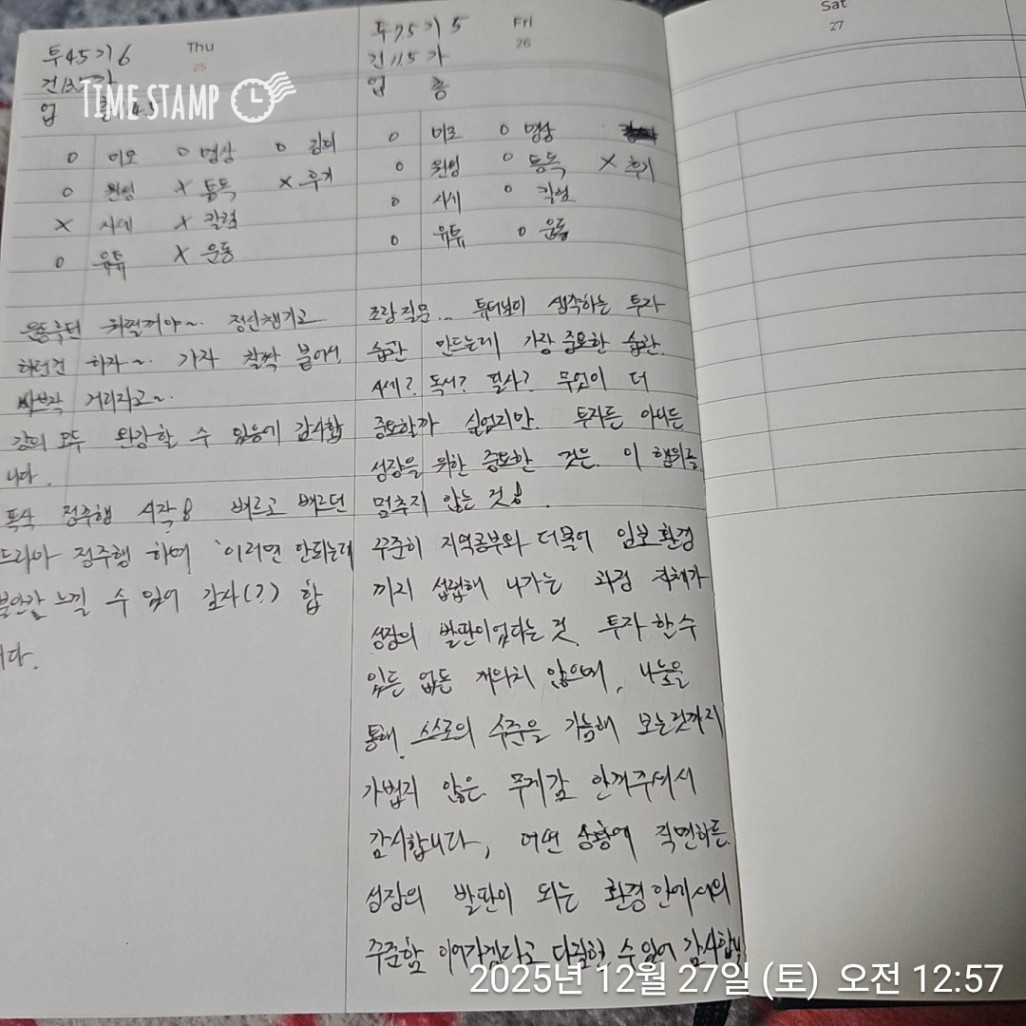 투 4.5 기 6
Thu
25
TIME STAMP
업
o 미모 o 명상 o 강의
o 원잉 x 통독 x 후기
x 시세 x 칼럼
o 유튜 x 운동
운동루틴 어쩔꺼야~. 정신챙기고
하던건 하자~. 가자 찰싹 붙어서
거리라고~.
강의 모두 완강할 수 있음에 감사합
니다.
폭삭 정주행 시작! 벼르고 벼르던
드라마 정주행 하며 '이러면 안되는데
불안감 느낄 수 있어 감사(?) 합
니다.
투 7.5 기 5
Fri
26
건 11.5 가
업 총
o 미모 o 명상
o 원잉 o 통독 x 후기
o 시세 o 칼럼
o 유튜 o 운동
조장질문... 튜터님이 생각하는 투자
습관 만드는데 가장 중요한 습관.
시세? 독서? 필사? 무엇이 더
중요할까 싶었지만. 투자든 아니든
성장을 위한 중요한 것은. 이 행위를
멈추지 않는 것!.
꾸준히 지역공부와 더불어 임보 환경
까지 섭렵해 나가는 과정 자체가
성장의 발판이었다는 것. 투자 할 수
있든 없든 개의치 않으며, 나눔을
통해. 스스로의 수준을 가늠해 보는것까지
가볍지 않은 무게감 안겨주셔서
감사합니다, 어떤 상황에 직면하든
성장의 발판이 되는 환경 안에서의
꾸준함 이어가겠다고 다짐할 수 있어 감사합니
Sat
27
2025년 12월 27일 (토) 오전 12:57